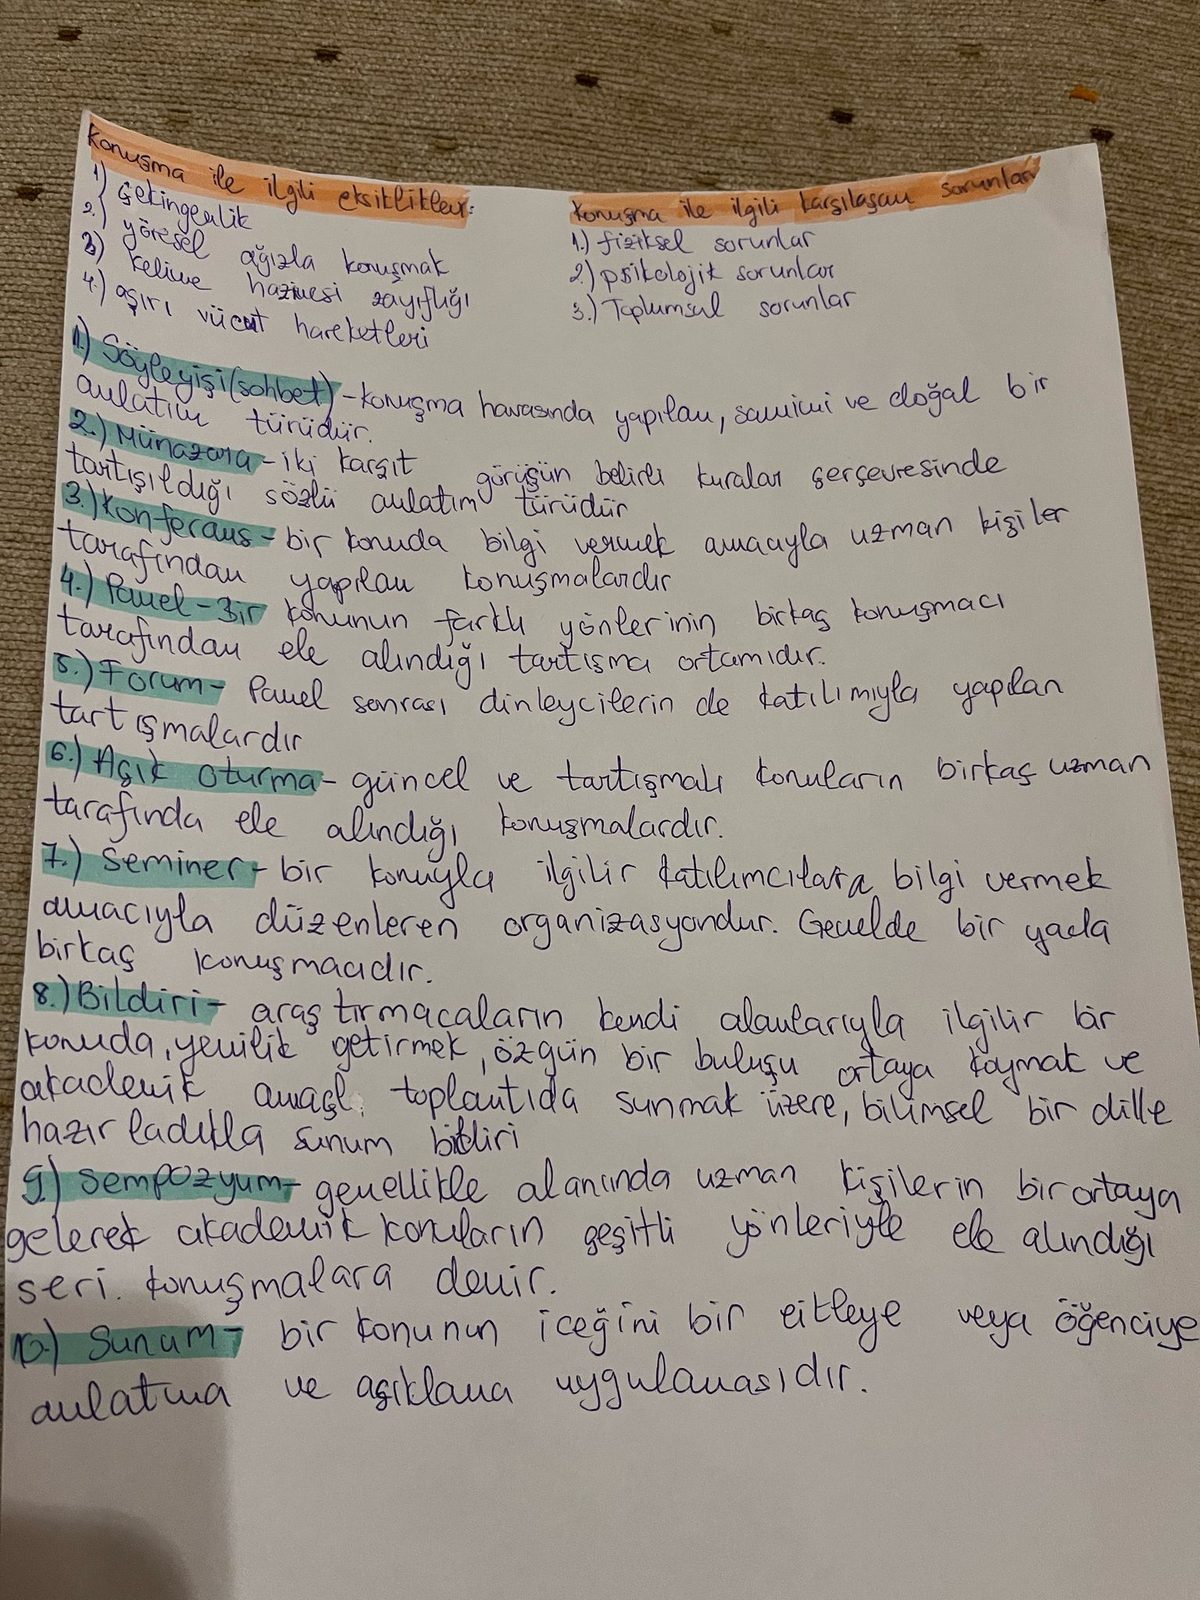 Konuşma ile ilgili eksiklikler:
1) Çekingenlik
2.) yöresel ağızla konuşmak
3) kelime hazinesi zayıflığı
4.) aşırı vücut hareketleri
Konuşma ile ilgili karşılaşan sorunlar
1.) fiziksel sorunlar
2.) psikolojik sorunlar
3.) Toplumsal sorunlar
1.) Söyleyişi (sohbet) - konuşma havasında yapılan, samimi ve doğal bir
anlatım türüdür.
2.) Münazara - iki karşıt görüşün belirli kuralar çerçevresinde
tartışıldığı sözlü anlatım türüdür
3.) Konferans - bir konuda bilgi vermek amacıyla uzman kişiler
tarafından yapılan konuşmalardır
4.) Panel - Bir konunun farklı yönlerinin birkaç konuşmacı
tarafından ele alındığı tartışma ortamıdır.
5.) Forum - Panel sonrası dinleycilerin de katılımıyla yapılan
tartışmalardır
6.) Açık oturma - güncel ve tartışmalı konuların birkaç uzman
tarafında ele alındığı konuşmalardır.
7.) Seminer - bir konuyla ilgilir katılımcılara bilgi vermek
amacıyla düzenleren organizasyondur. Genelde bir yada
birkaç konuşmacıdır.
8.) Bildiri - araştırmacaların kendi alanlarıyla ilgilir bir
konuda, yenilik getirmek, özgün bir buluşu ortaya koymak ve
akademik amaçlı toplantıda sunmak üzere, bilimsel bir dille
hazırladıkla sunum bildiri
9.) Sempozyum - genellikle alanında uzman kişilerin bir ortaya
gelerek akademik konuların çeşitli yönleriyle ele alındığı
seri. konuşmalara denir.
10.) Sunum - bir konunun iceğini bir eitleye veya öğenciye
anlatma ve açıklama uygulamasıdır.